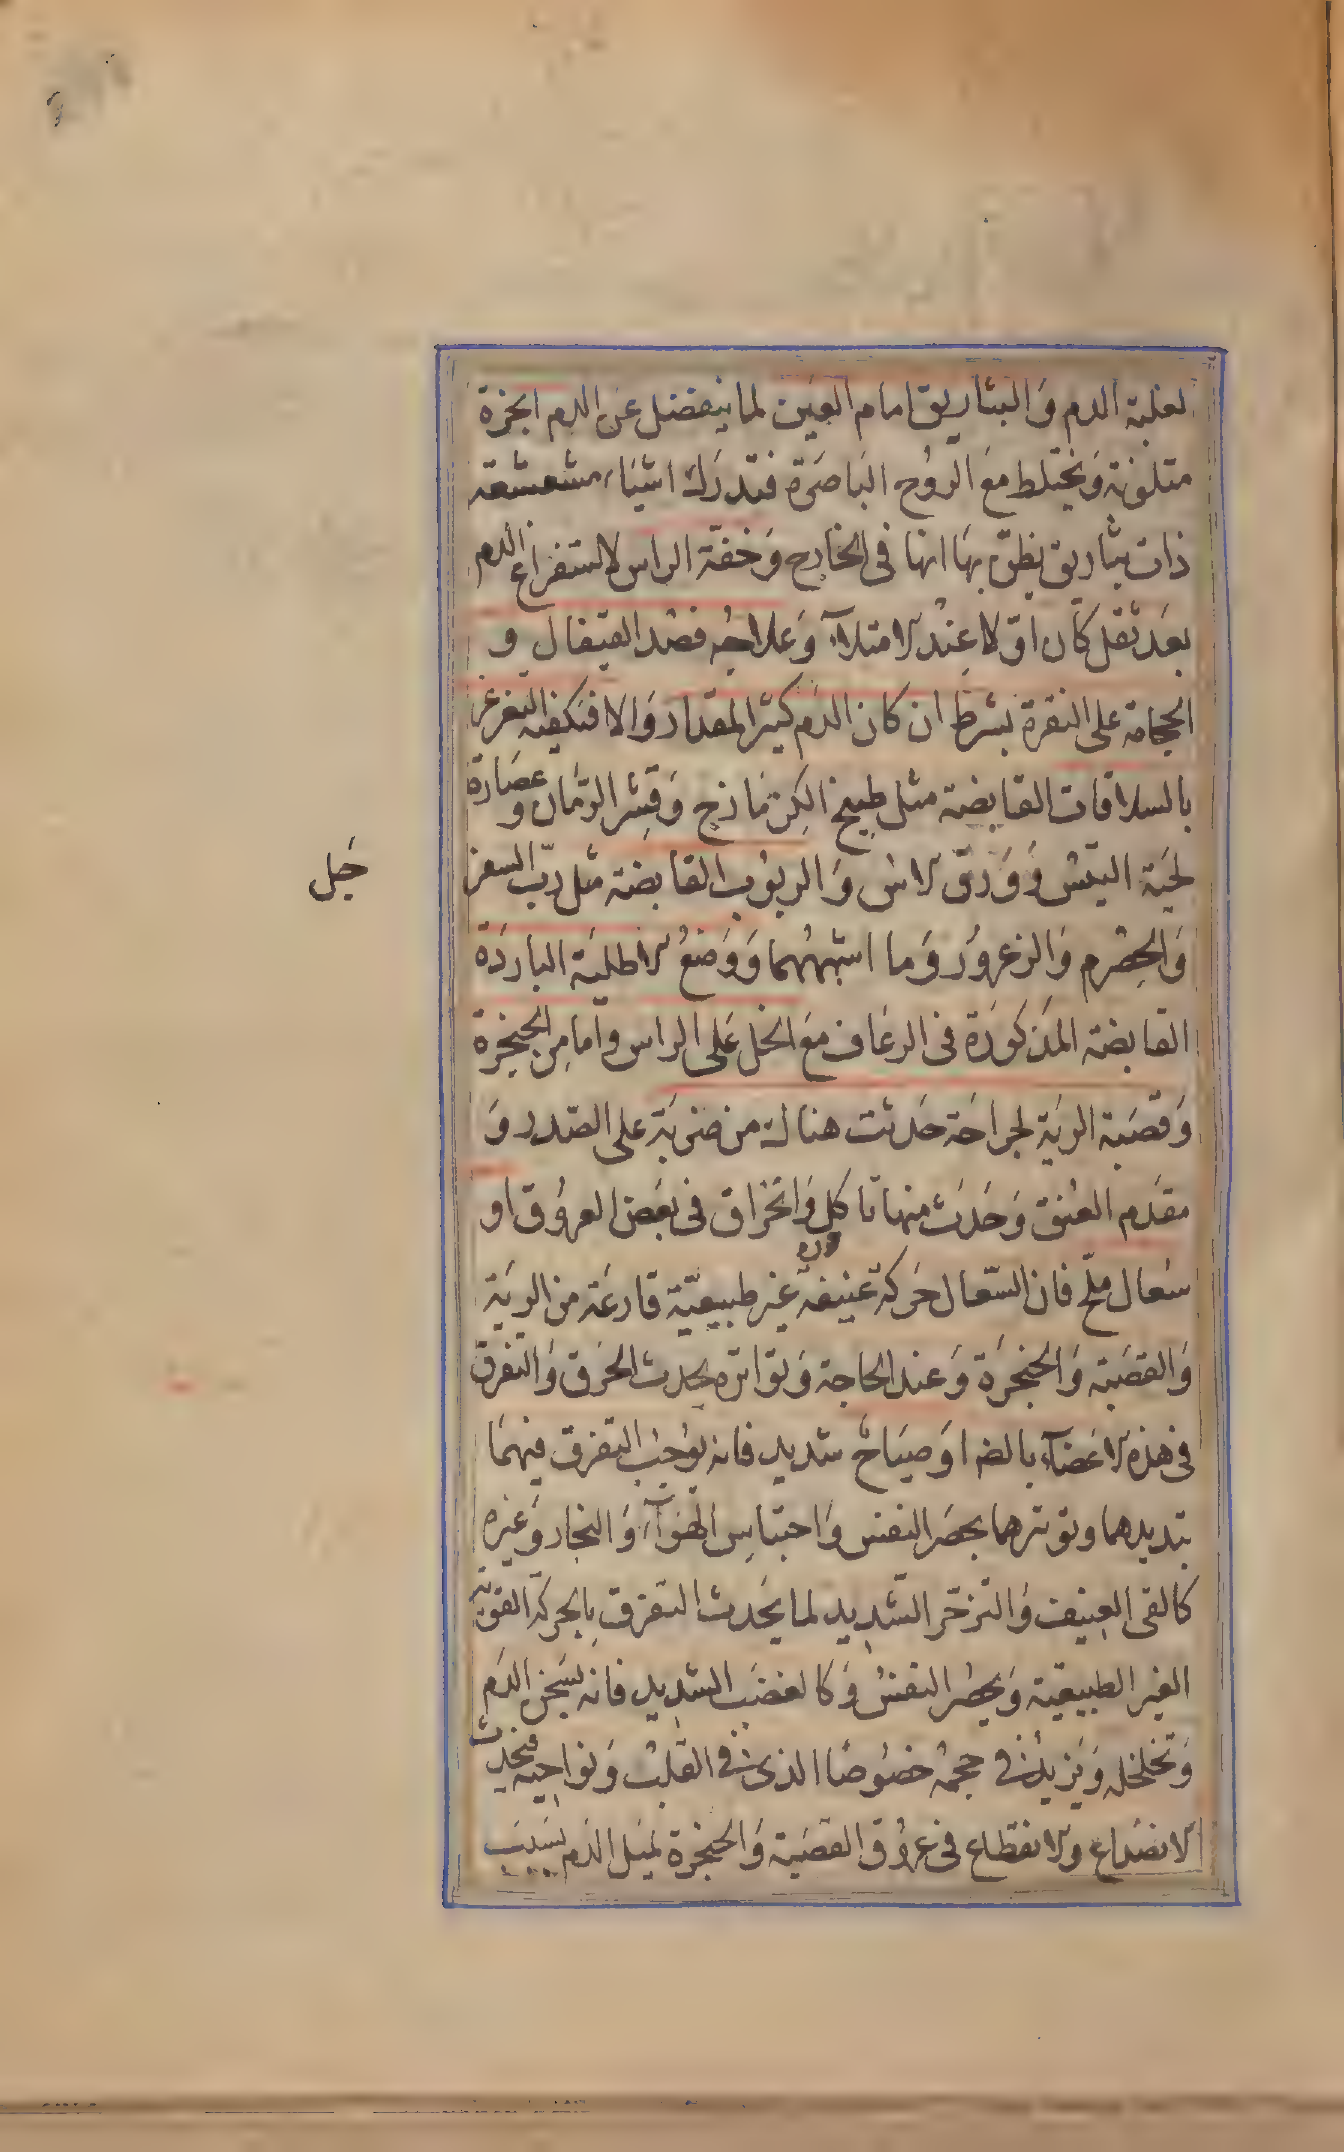 لغلبة الدم وَالتباريق امام العين لما ينفصل عن الدم ابخرة
متلونة وَيختلط مَعَ الروُح البَاصَرة فتدرَك اشيَاء مشعشعة
ذات تباريق يظنّ بهَا انها فى الخارج وَخفة الراس لاستفراغ الدم
بعَد ثقل كان اوّلا عِنْد الامتلاء وَعلاجُه فصْد القيفال و
الحجامة على النقرة بشرط ان كان الدَم كثير المقدار وَالا فتكفيه التغرغر
بالسلاقات القابضة مثل طبيخ الكزمَازج وَقشِر الرمّان وعصَارة
لحيَة التيسْ وَوَرَق الاسْ وَالربوُب القابضة مثل ربّ السفرجل
وَالحِصْرم وَالزعروُر وَما اشبههُما وَوَضعْ الاطليَة البارِدَة
القابضة المَذكورَة فى الرعَاف مَعَ الخل عَلى الراس وامّا مِن الحنجَرة
وَقصَبة الريَة لجراحَة حَدثت هناك من ضرْبَة على الصَدر وَ
مقَدم العُنق وَحَدَث منهَا تاكل وَانخراق فى بَعض العروُق او
سُعال ملحّ فان السّعال حَركة عَنيفة غير طبيعيّة قارعَة من الريَة
وَالقصَبة وَالحَنجَرَة وَعند الحاجة وَتواتره يحدث الخَرق وَالتفرق
فى هَذه الاعَضاء بالضم اوَ صيَاحْ شديد فانه يوُجبُ التفرق فيهمَا
بتديدهما وتوترهما بحصَر النفس وَاحتباسِ الهَوآء وَالبخار وَغيره
كالقى العنيف وَالتزحّر الشديد لما يَحدث التفرق بالحركة القوية
الغير الطبيعيّة وَبحصْر النفسُ وَكالغضَب الشديد فانه يُسَخن الدَم
وَتخلخله وَيَزيد فى حجمهْ خصُوصًا الذى فى القلبْ وَنواحيه فيحدث
الانصْداع والانقطاع فى عروُق القصَبة وَالحنجرة لميَل الدَم بسَبَب